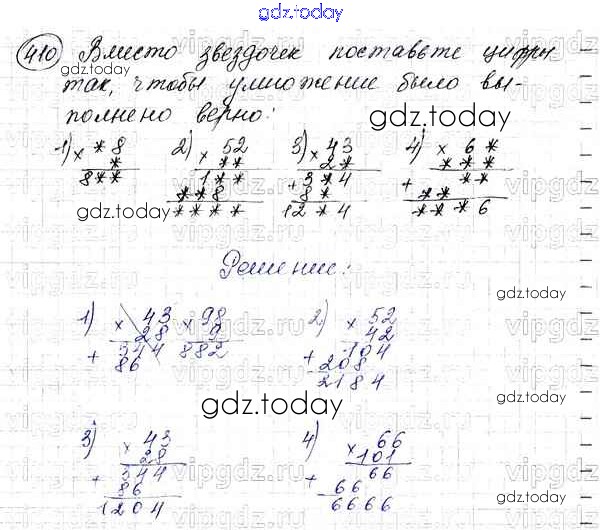 gdz.today
410 Вместо звездочек поставьте цифры
gdz.today
так, чтобы умножение было вы-
полнено верно:
gdz.today
1) × *8 2) × 52 3) × 43 4) × 6*
* ** 2* ***
8** 1** + 3*4 + **
**8 8* **
gdz.today **** 12*4 ***6
gdz.today
Решение:
gdz.today
1) × 43 × 98 2) × 52
28 9 42
+ 344 882 + 104
86 208
2184
gdz.today
3) × 43 4) × 66
28 101
+ 344 + 66
86 66
1204 6666
gdz.today